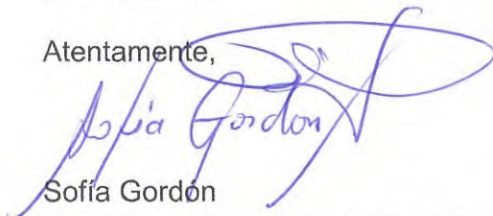 Atentamente,
Sofia Gordon
Sofía Gordón